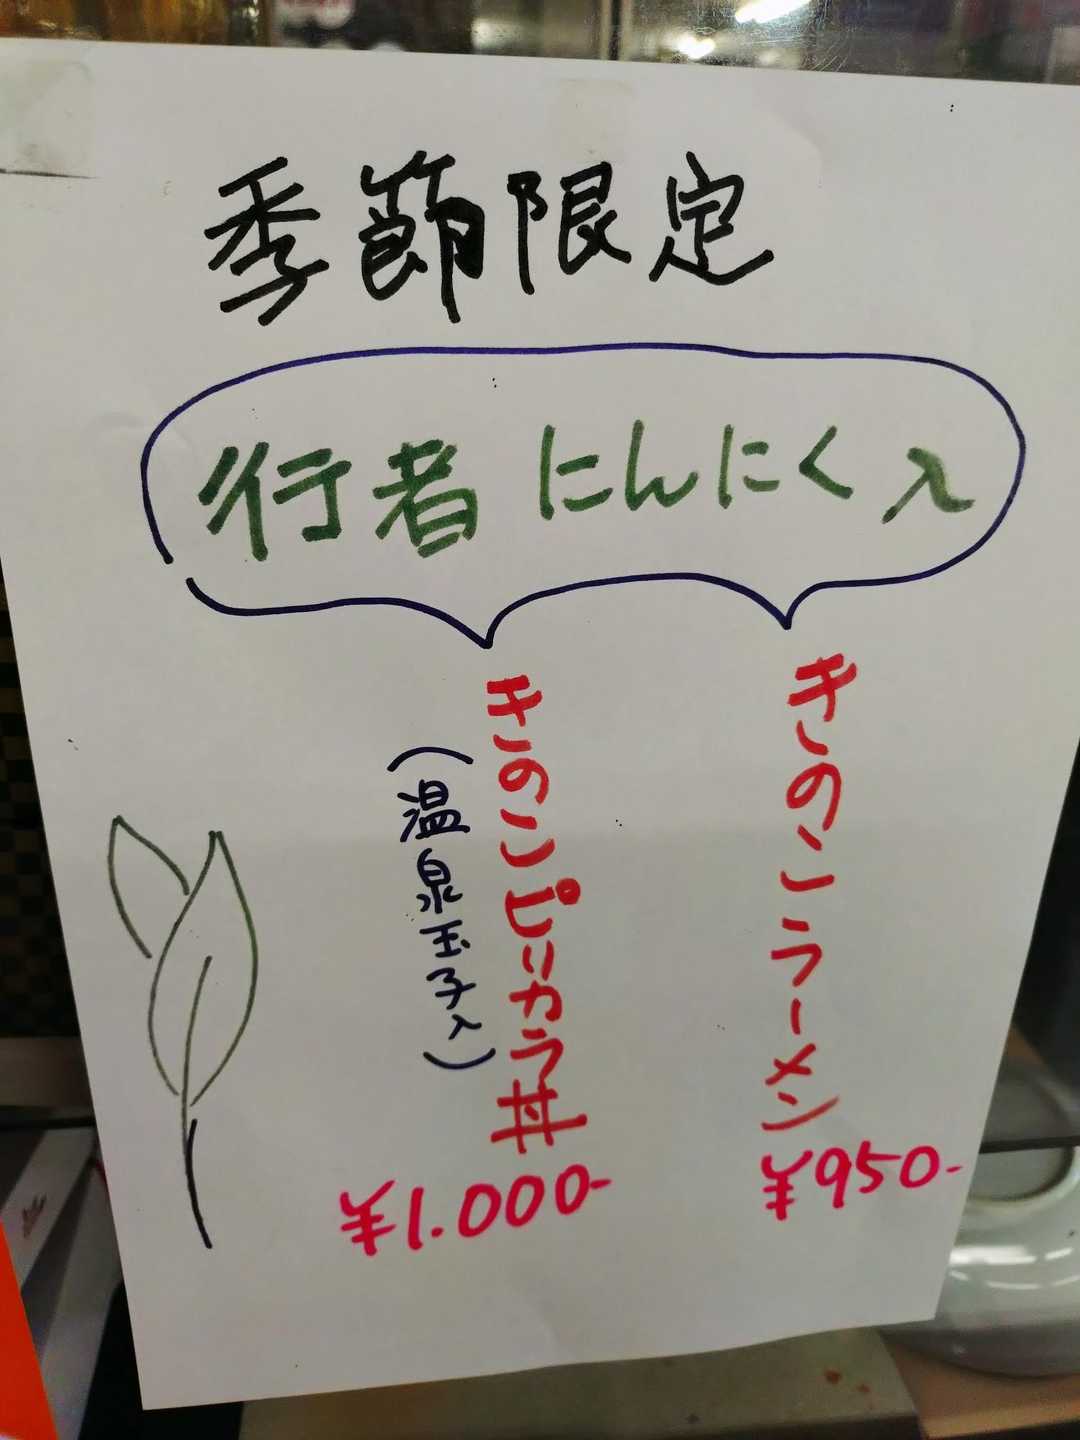 季節限定
行者にんにく入
きのこラーメン
¥950-
きのこピリカラ丼
(温泉玉子入)
¥1.000-